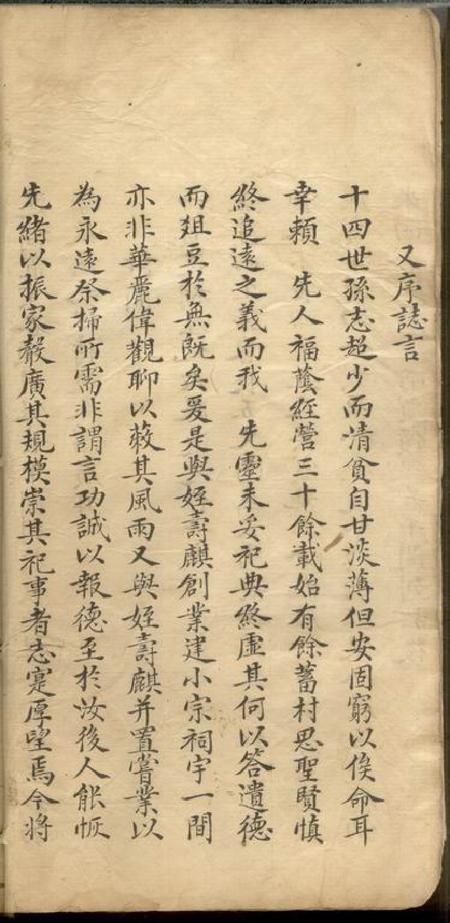 又序誌言
十四世孫志超少而清貧自甘淡薄但安固窮以俟命耳
幸頼　先人福蔭經營三十餘載始有餘蓄村思聖賢慎
終追遠之義而我　先靈未妥祀典終虛其何以答遺德
而俎豆於無既矣爰是與姪壽麒創業建小宗祠宇一間
亦非華麗偉觀聊以蔽其風雨又與姪壽麒并置嘗業以
為永遠祭掃所需非謂言功誠以報德至於汝後人能恢
先緒以振家聲廣其規模崇其祀事者志寔厚望焉今將